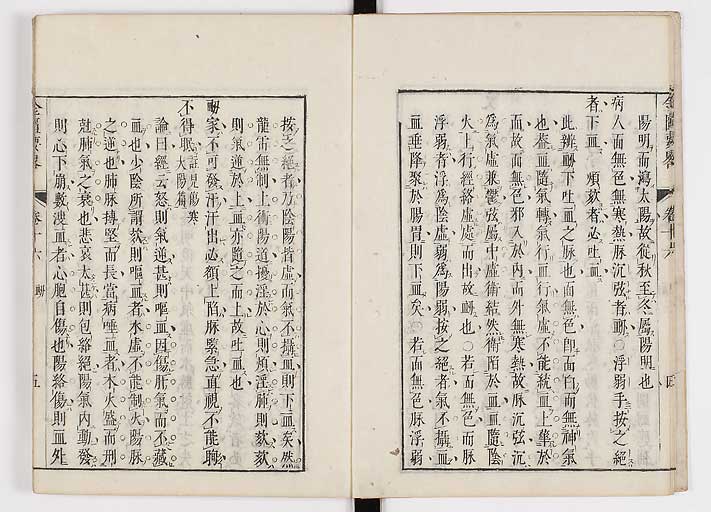 陽明而瀉太陽故從秋至冬屬陽明也
病人面無色無寒熱脉沉弦者衄○浮弱手按之絕
者下血煩欬者必吐血
此辨衄下吐血之脉也面無色卽面白而無神氣
也蓋血隨氣轉氣行血行氣虛不能統血上壅於
面故面無色邪入於內而外無寒熱故脉沉弦沉
爲氣虛兼鬱弦屬中虛衛結然衛陷於血血隨陰
火上行經絡虛處而出故衄也○若面無色而脉
浮弱者浮爲陰虛弱爲陽弱按之絕者氣不攝血
血垂降聚於腸胃則下血矣○若面無色脉浮弱
金匱要畧
按之絕者乃陰陽皆虛而氣不攝血則下血矣然
龍雷無制上衝陽道擾淫於心則煩淫肺則欬欬
則氣逆於上血亦隨之而上故吐血也
衄家不可發汗汗出必額上陷脉緊急直視不能眴
不得眠
論曰經云怒則氣逆甚則嘔血因傷肝氣而不藏
血也少陰所謂欬則嘔血者水虛不能制火陽脉
之逆也肺脉搏堅而長當病唾血者木火盛而刑
尅肺氣之衰也悲哀太甚則包絡絕陽氣內動發
則心下崩數溲血者心胞自傷也陽絡傷則血外
金匱要畧
卷十六
衄
五